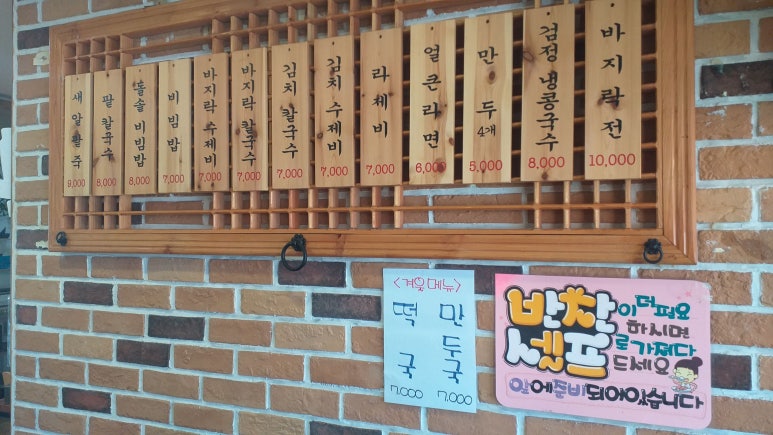 새알팥죽
9,000
팥칼국수
8,000
돌솥비빔밥
8,000
비빔밥
7,000
바지락수제비
7,000
바지락칼국수
7,000
김치칼국수
7,000
김치수제비
7,000
라제비
7,000
얼큰라면
6,000
만두4개
5,000
검정냉콩국수
8,000
바지락전
10,000
<겨울메뉴>
떡국
7.000
만두국
7.000
반찬이 더필요
하시면
셀프로 가져다
드세요
앞에준비되어있습니다